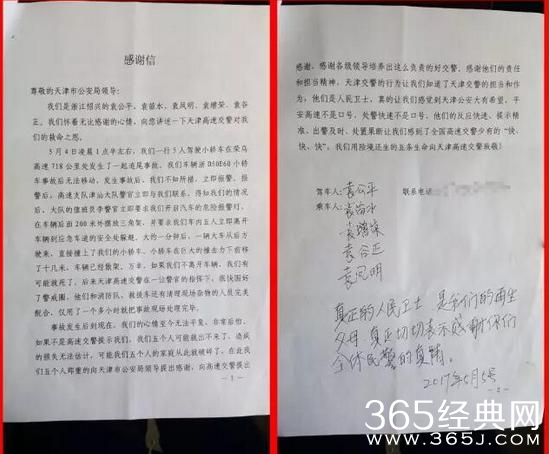 感谢信
尊敬的天津市公安局领导:
我们是浙江绍兴的袁公平、袁苗水、袁凤明、袁增荣、袁谷
正。我们怀着无比感谢的心情,向您讲述一下天津高速交警对我
们的救命之恩。
5月4日凌晨1点半左右,我们一行5人驾驶小轿车在荣乌
高速718公里处发生了一起追尾事故。我们车辆浙D50E60小轿
车事故后无法移动。发生事故后,我们不知所措,立即报警。报警
后,高速支队津汕大队警官立即与我们联系,得知我们的情况
后,大队的值班员李警官立即要求我们开启汽车的危险报警灯,
在车辆后面200米外摆放三角架,并要求我们车内五人立即离开
车辆到应急车道的安全处躲避。大约一分钟后,一辆大车从后方
驶来,直接撞上了我们的小轿车,小轿车在巨大的撞击力下前移
了十几米,车辆已经散架。万幸,如果我们不离开车辆,我们有
可能就死了。后来天津高速交警在一位警官的指挥下,我快围好
了警戒圈,他们和消防队、救援车还有清理现场杂物的人员完美
配合,仅用了一个多小时就把事故现场处理完毕。
事故发生后到现在,我们的心情至今无法平复,非常后怕,
如果不是高速交警提示我们,我们五个人可能就出不来了,造成
的损失无法估计,可能我们五个人的家庭从此就破碎了。在此我
们五个人郑重的向天津市公安局领导提出感谢,向高速交警提出
- 1 -
感谢,感谢各级领导培养出这么负责的好交警,感谢他们的责任
和担当精神,天津交警的行为让我们知道了天津交警的担当和作
为,他们是人民卫士,真的让我们感觉到天津公安大有希望。平
安高速不是口号,处警快速不是口号,他们的反应快速、提示精
准、出警及时、处置果断让我们感到了全国高速交警少有的“快、
快、快”,我们用险境还生的五条生命向天津高速交警致敬!
驾车人:袁公平 联系电话
乘车人:袁苗水
袁增荣
袁谷正
袁凤明
真正的人民卫士 是我们的再生
父母 真正切切表示感谢你们
全体民警的真情。
2017年5月5号
- 2 -
365经典网
WWW.365J.COM